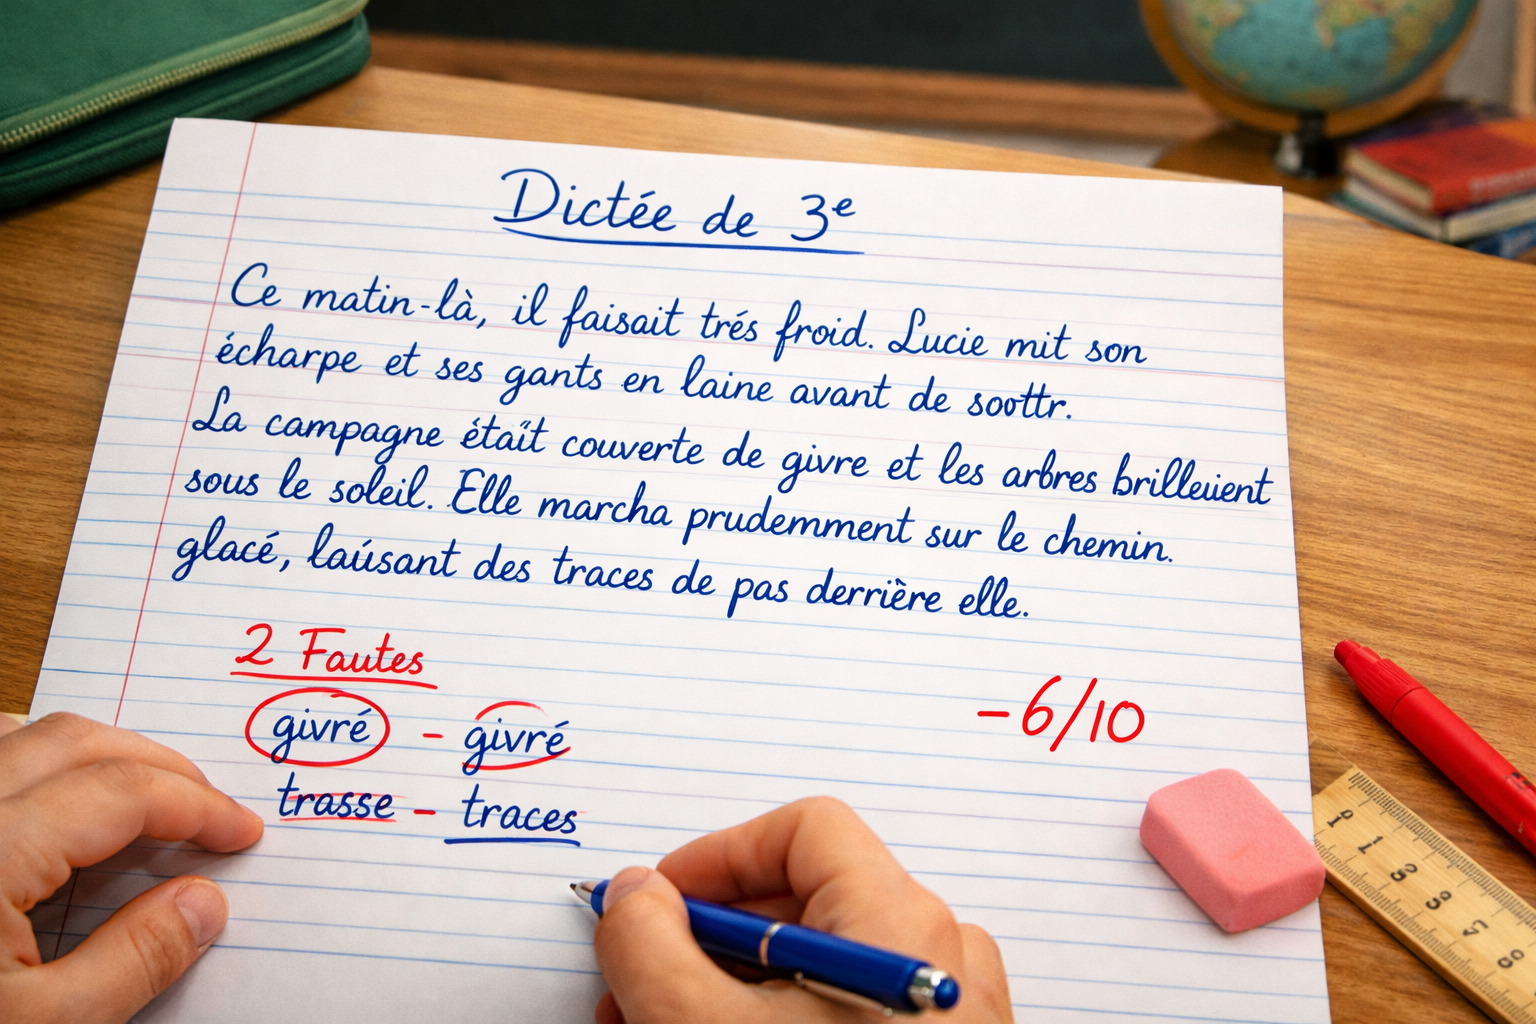 Dictée de 3e
Ce matin-là, il faisait trés froid. Lucie mit son
écharpe et ses gants en laine avant de soottr.
La campagne étaït couverte de givre et les arbres brilleuient
sous le soleil. Elle marcha prudemment sur le chemin.
glacé, laúsant des traces de pas derrière elle.
2 Fautes
givré - givré
-6/10
trasse - traces